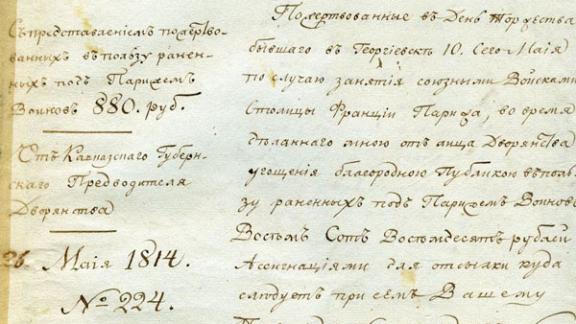 Съ представленіемъ пожертво-
ванныхъ въ пользу ранен-
ныхъ подъ Парижемъ
Воиновъ 880. руб.
Отъ Кавказскаго Губерн-
скаго Предводителя
Дворянства
26. Маія 1814.
№ 224.
Пожертвованные въ День Торжества
бывшаго въ Георгіевскѣ 10. сего Маія
по случаю занятія союзными Войсками
Столицы Франціи Парижа, во время
зделаннаго мною отъ лица Дворянства
угощенія благородною Публикою въ поль-
зу раненныхъ подъ Парижемъ Воиновъ
Восемь Сотъ Восемдесятъ рублей
Асигнаціями для отсылки куда
слѣдуетъ при семъ Вашему